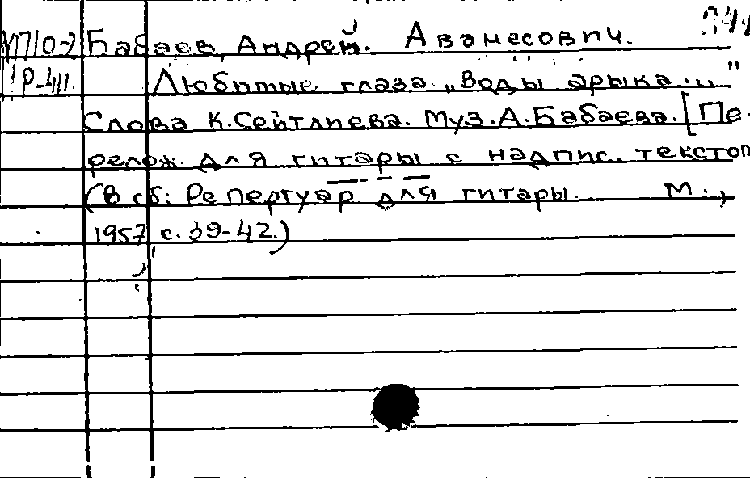 М710-2 Бабаев, Андрей. Аванесович.
Р-411 Любимые глаза. „Воды арыка..."
Слова К. Сейтлиева. Муз. А. Бабаева. [Пе-
релож. для гитары с надпис. текстом
(В сб.: Репертуар для гитары. М.,
1957, с. 39-42.)